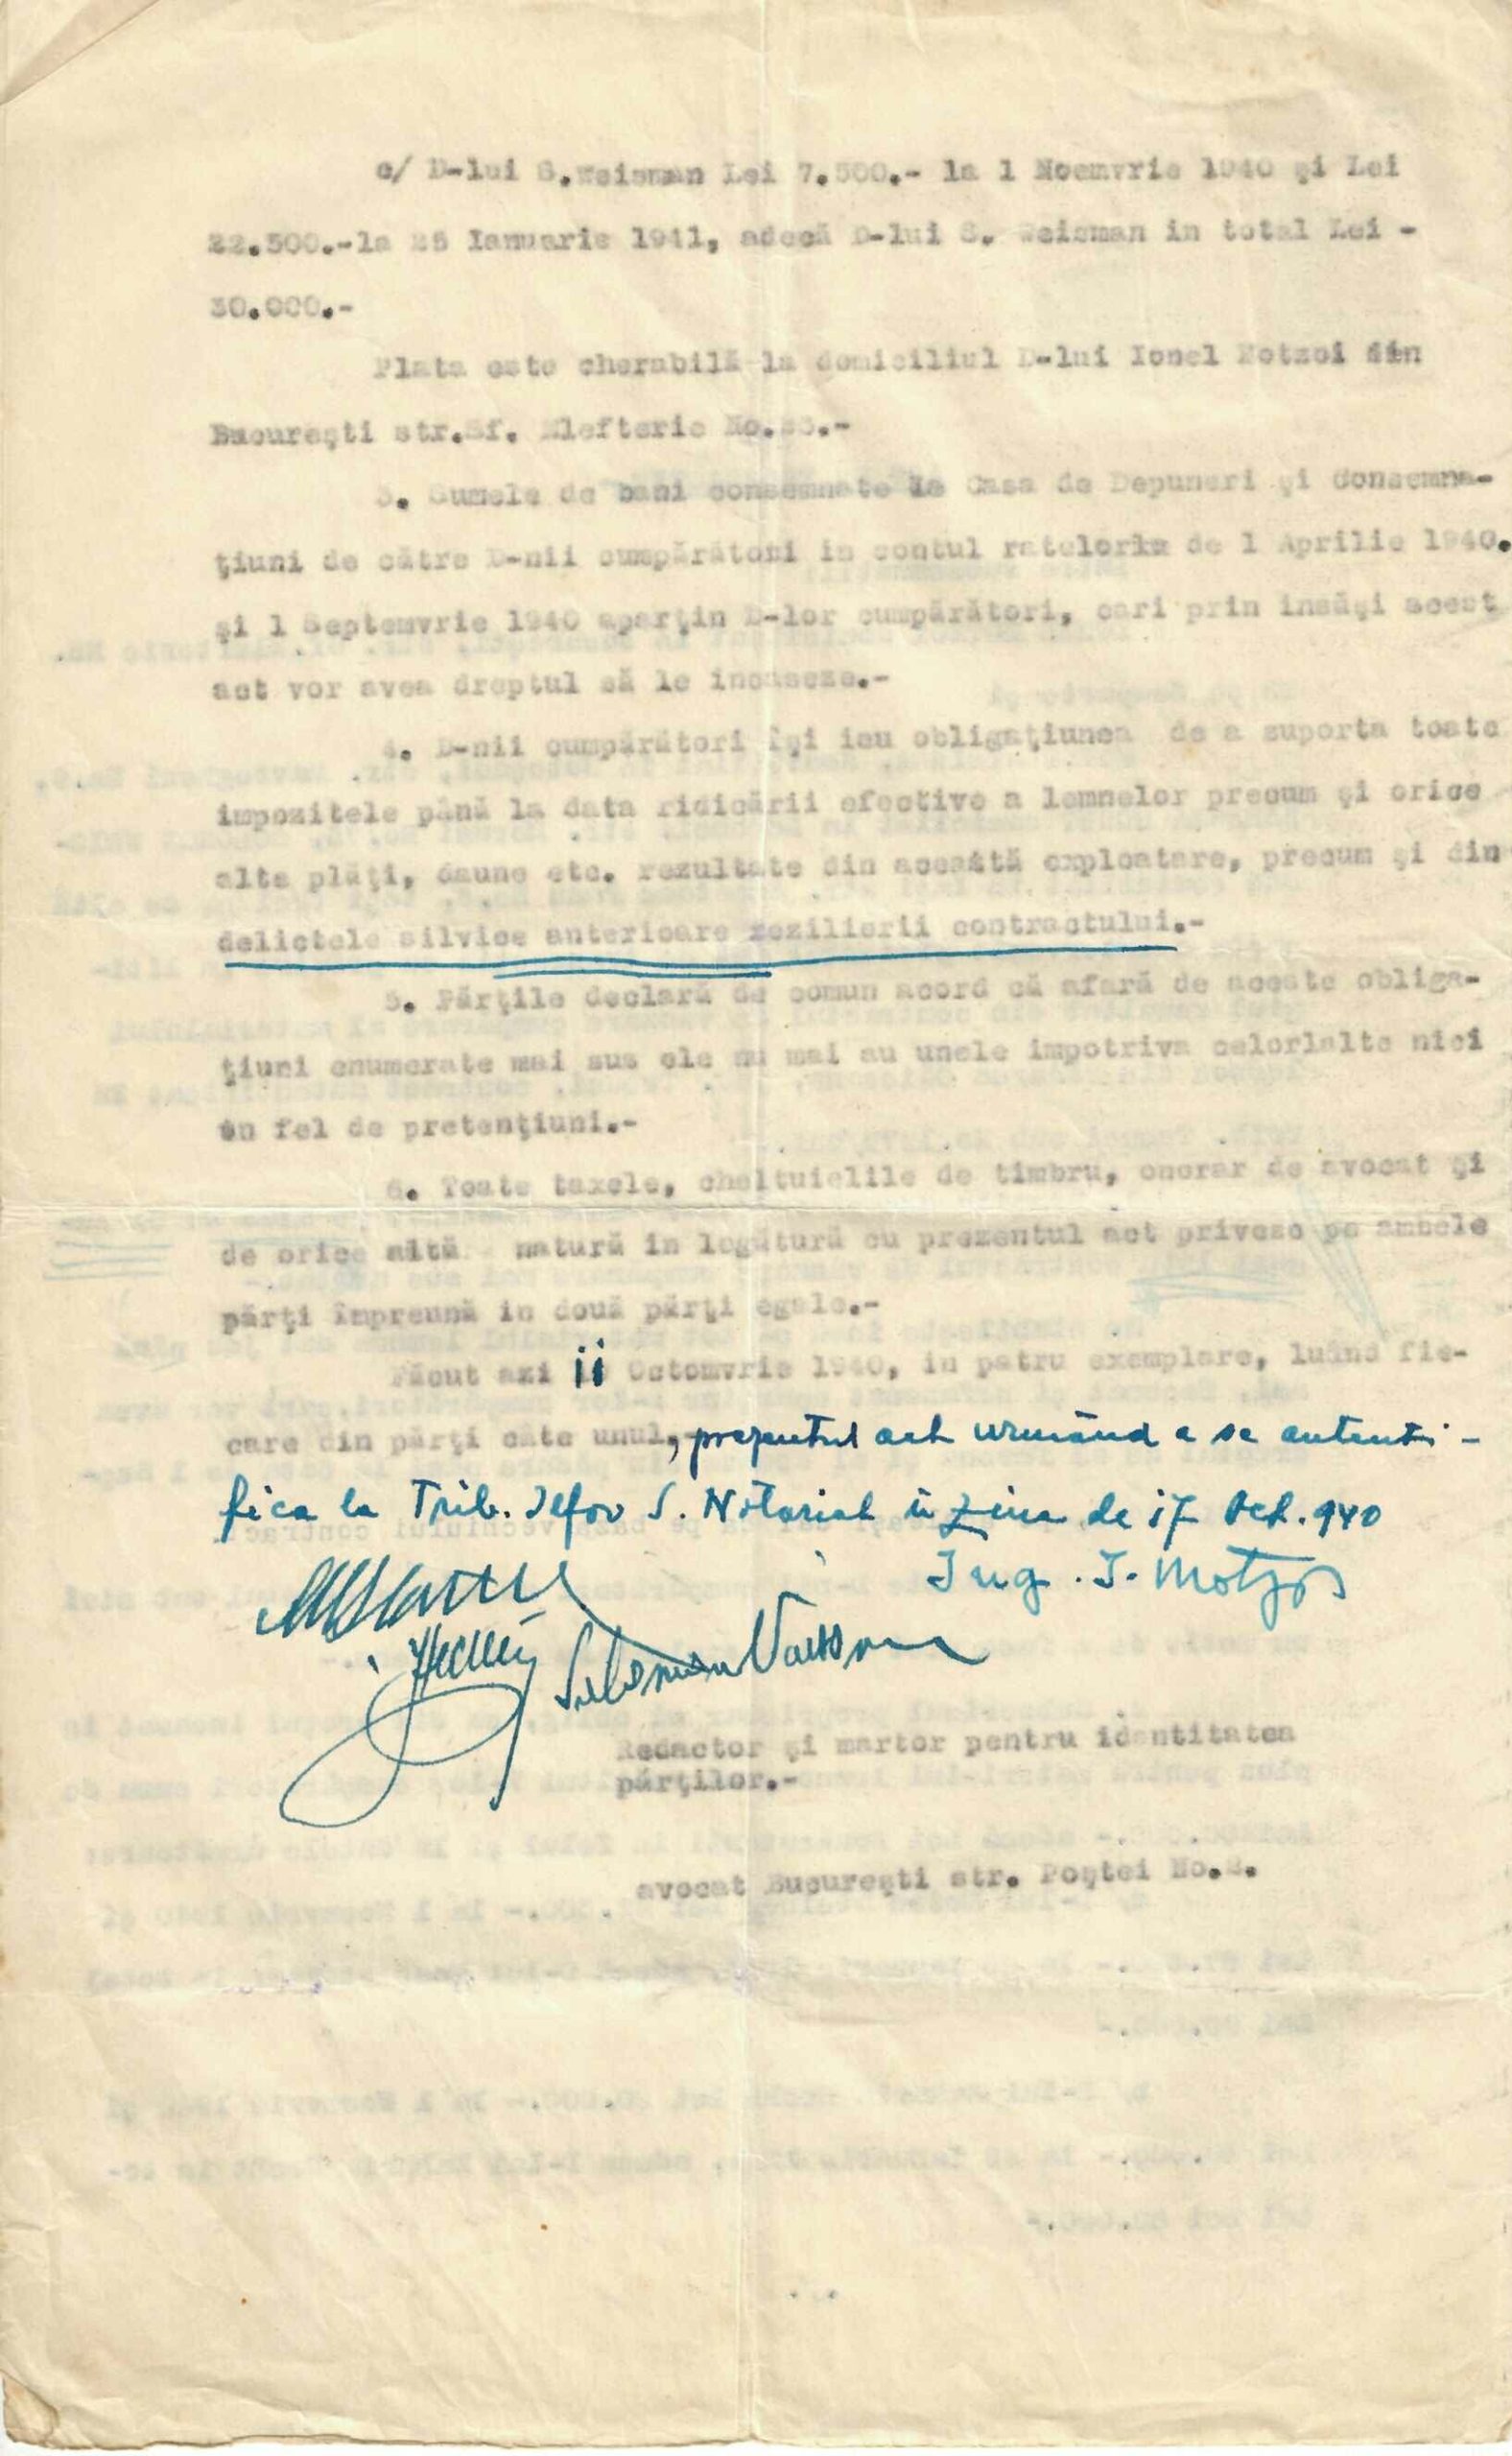 c/ D-lui S.Weisman Lei 7.500.- la 1 Noemvrie 1940 și Lei
22.500.-la 25 Ianuarie 1941, adecă D-lui S. Weisman in total Lei -
30.000.-
Plata este cherabilă la domiciliul D-lui Ionel Motzoi din
București str.Sf. Elefterie No.
3. Sumele de bani consemnate la Casa de Depuneri și Consemna-
țiuni de către D-nii cumpărători in contul ratelor de 1 Aprilie 1940.
și 1 Septemvrie 1940 aparțin D-lor cumpărători, cari prin insăși acest
act vor avea dreptul să le incaseze.-
4. D-nii cumpărători își ieu obligațiunea de a suporta toate
impozitele până la data ridicării efective a lemnelor precum și orice
alte plăți, daune etc. rezultate din această exploatare, precum și din
delictele silvice anterioare rezilierii contractului.-
5. Părțile declară de comun acord că afară de aceste obliga-
țiuni enumerate mai sus ele nu mai au unele impotriva celorlalte nici
un fel de pretențiuni.-
6. Toate taxele, cheltuielile de timbru, onorar de avocat și
de orice altă natură in legătură cu prezentul act privesc pe ambele
părți împreună in două părți egale.-
Făcut azi 11 Octomvrie 1940, in patru exemplare, luând fie-
care din părți câte unul, prezentul act urmând a se autenti-
fica la Trib. Ilfov S. Notariat în ziua de 17 Oct. 940
Ing. I. Motzoi
Solomon
Redactor și martor pentru identitatea
părților.-
avocat București str. Poștei No.2.